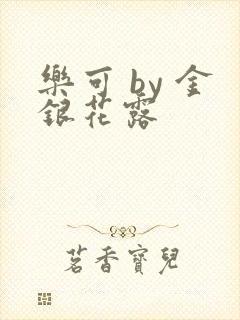 樂可 by 金
銀花露
茗香寶兒